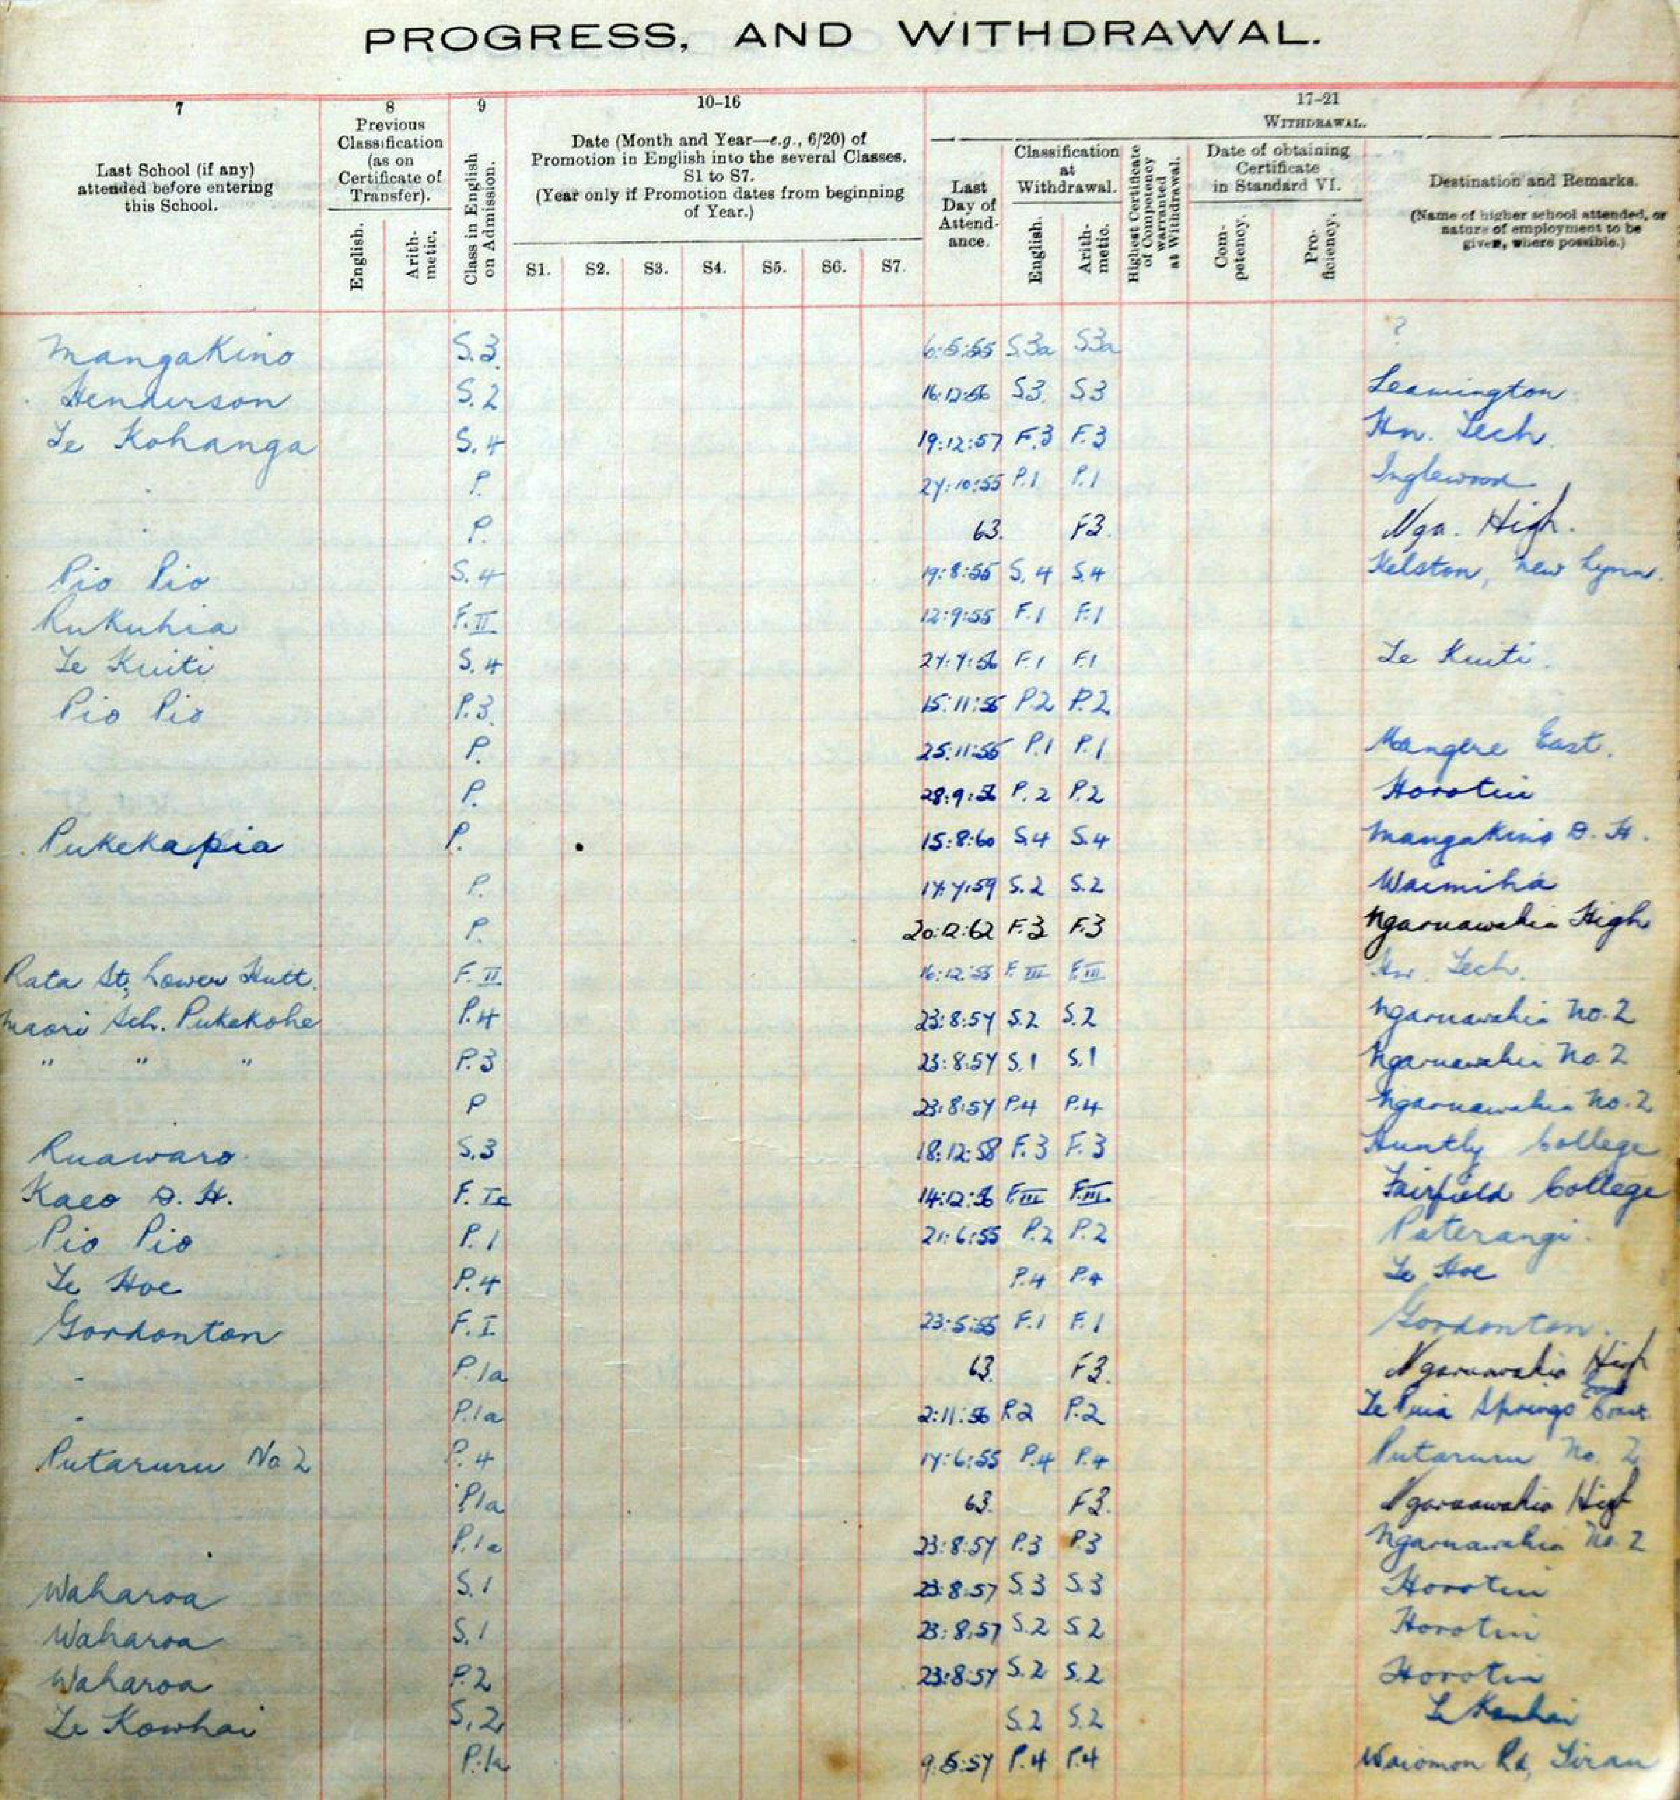 PROGRESS, AND WITHDRAWAL.
7
Last School (if any) attended before entering this School.
8
Previous Classification (as on Certificate of Transfer).
English.
Arith-metic.
9
Class in English on Admission.
10-16
Date (Month and Year—e.g., 6/20) of Promotion in English into the several Classes.
S1 to S7.
(Year only if Promotion dates from beginning of Year.)
S1. S2. S3. S4. S5. S6. S7.
17-21
WITHDRAWAL.
Last Day of Attend-ance.
Classification at Withdrawal.
English.
Arith-metic.
Highest Certificate of Competency warranted at Withdrawal.
Date of obtaining Certificate in Standard VI.
Com-petency.
Pro-ficiency.
Destination and Remarks.
(Name of higher school attended, or nature of employment to be given, where possible.)
Mangakino S.3. 6:5:55 S3a S3a ?
Henderson S.2 16:12:56 S3. S3 Leamington
Te Kohanga S.4 19:12:57 F.3 F.3 Hn. Tech.
P. 27:10:55 P.1 P.1 Inglewood
P. 63. F3. Nga. High.
Pio Pio S.4 19:8:55 S.4 S.4 Kelston, New Lynn.
Rukuhia F.II 12:9:55 F.1 F.1
Te Kuiti S.4 27:7:56 F.1 F.1 Te Kuiti.
Pio Pio P.3. 15:11:55 P2 P.2
P. 25:11:55 P.1 P.1 Mangere East.
P. 28:9:56 P.2 P.2 Horotiu
Pukekapia P. 15:8:60 S.4 S.4 Mangakino D. H.
P. 17:7:59 S.2 S.2 Waimiha
P. 20:12:62 F.3 F.3 Ngaruawahia High
Rata St., Lower Hutt. F.II 16:12:55 F.III F.III Hn. Tech.
Maori Sch. Pukekohe P.4 23:8:57 S.2 S.2 Ngaruawahia No.2
" " " P.3 23:8:57 S.1 S.1 Ngaruawahia No.2
P 23:8:57 P.4 P.4 Ngaruawahia No.2
Ruawaro S.3 18:12:58 F.3 F.3 Huntly College
Kaeo D. H. F. 14:12:56 F.III F.III Fairfield College
Pio Pio P.1 21:6:55 P.2 P.2 Paterangi.
Te Hoe P.4 P.4 P.4 Te Hoe
Gordonton F.I 23:5:55 F.1 F.1 Gordonton.
P.1a 63. F3. Ngaruawahia High
P.1a 2:11:56 P.2 P.2 Te Puia Springs East Coast
Putaruru No 2 P.4 17:6:55 P.4 P.4 Putaruru No. 2
P1a 63. F3. Ngaruawahia High
P.1a 23:8:57 P.3 P.3 Ngaruawahia No 2
Waharoa S.1 23:8:57 S.3 S.3 Horotiu
Waharoa S.1 23:8:57 S.2 S2 Horotiu
Waharoa P.2 23:8:57 S.2 S.2 Horotiu
Te Kowhai S.2 S.2 S.2 Te Kowhai
P.1a 9:5:57 P.4 P.4 Rd,